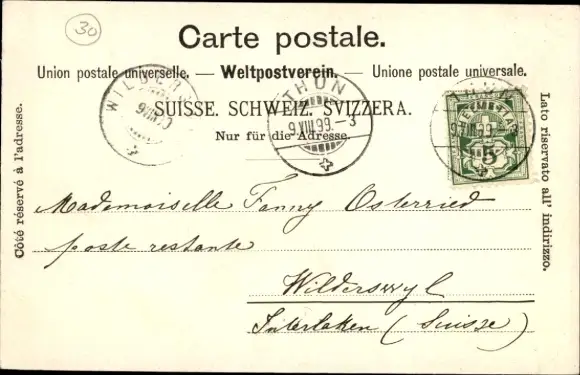 30
Carte postale.
Union postale universelle. — Weltpostverein. — Unione postale universale.
SUISSE. SCHWEIZ. SVIZZERA.
Nur für die Adresse.
Côté réservé à l'adresse.
Lato riservato all' indirizzo.
THUN
9.VIII.99.-3
THUN
5
Mademoiselle Fanny Osterried
poste restante
Wilderswyl
Interlaken (Suisse)